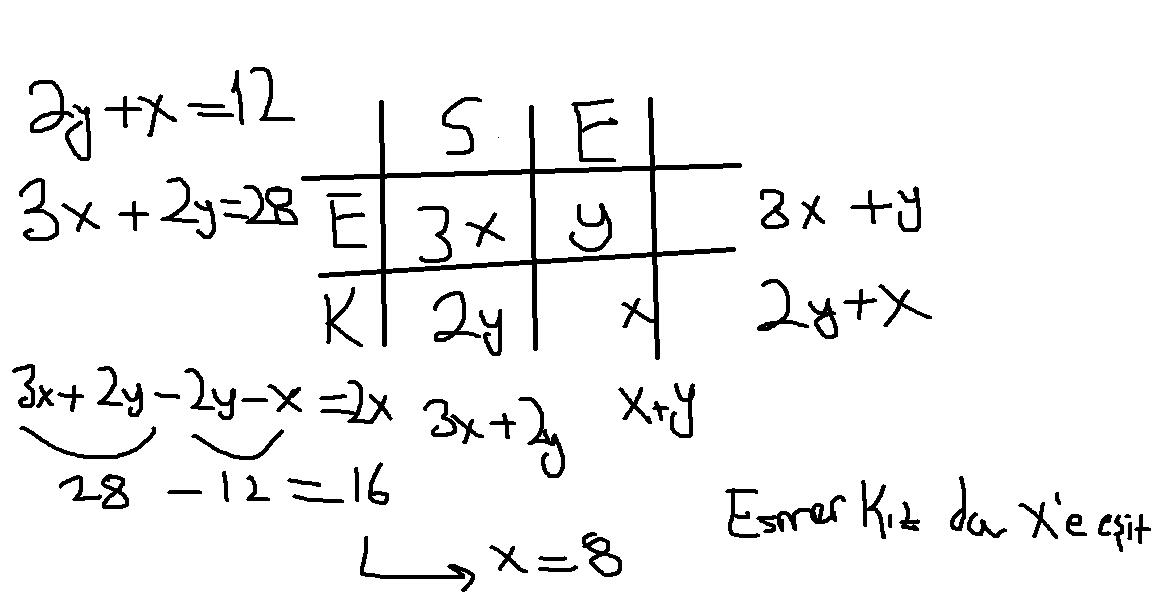 2y+x=12
3x+2y=28
S E
E 3x y 3x+y
K 2y x 2y+x
3x+2y x+y
3x+2y-2y-x=2x
28 -12=16
x=8
Esmer Kız da x'e eşit